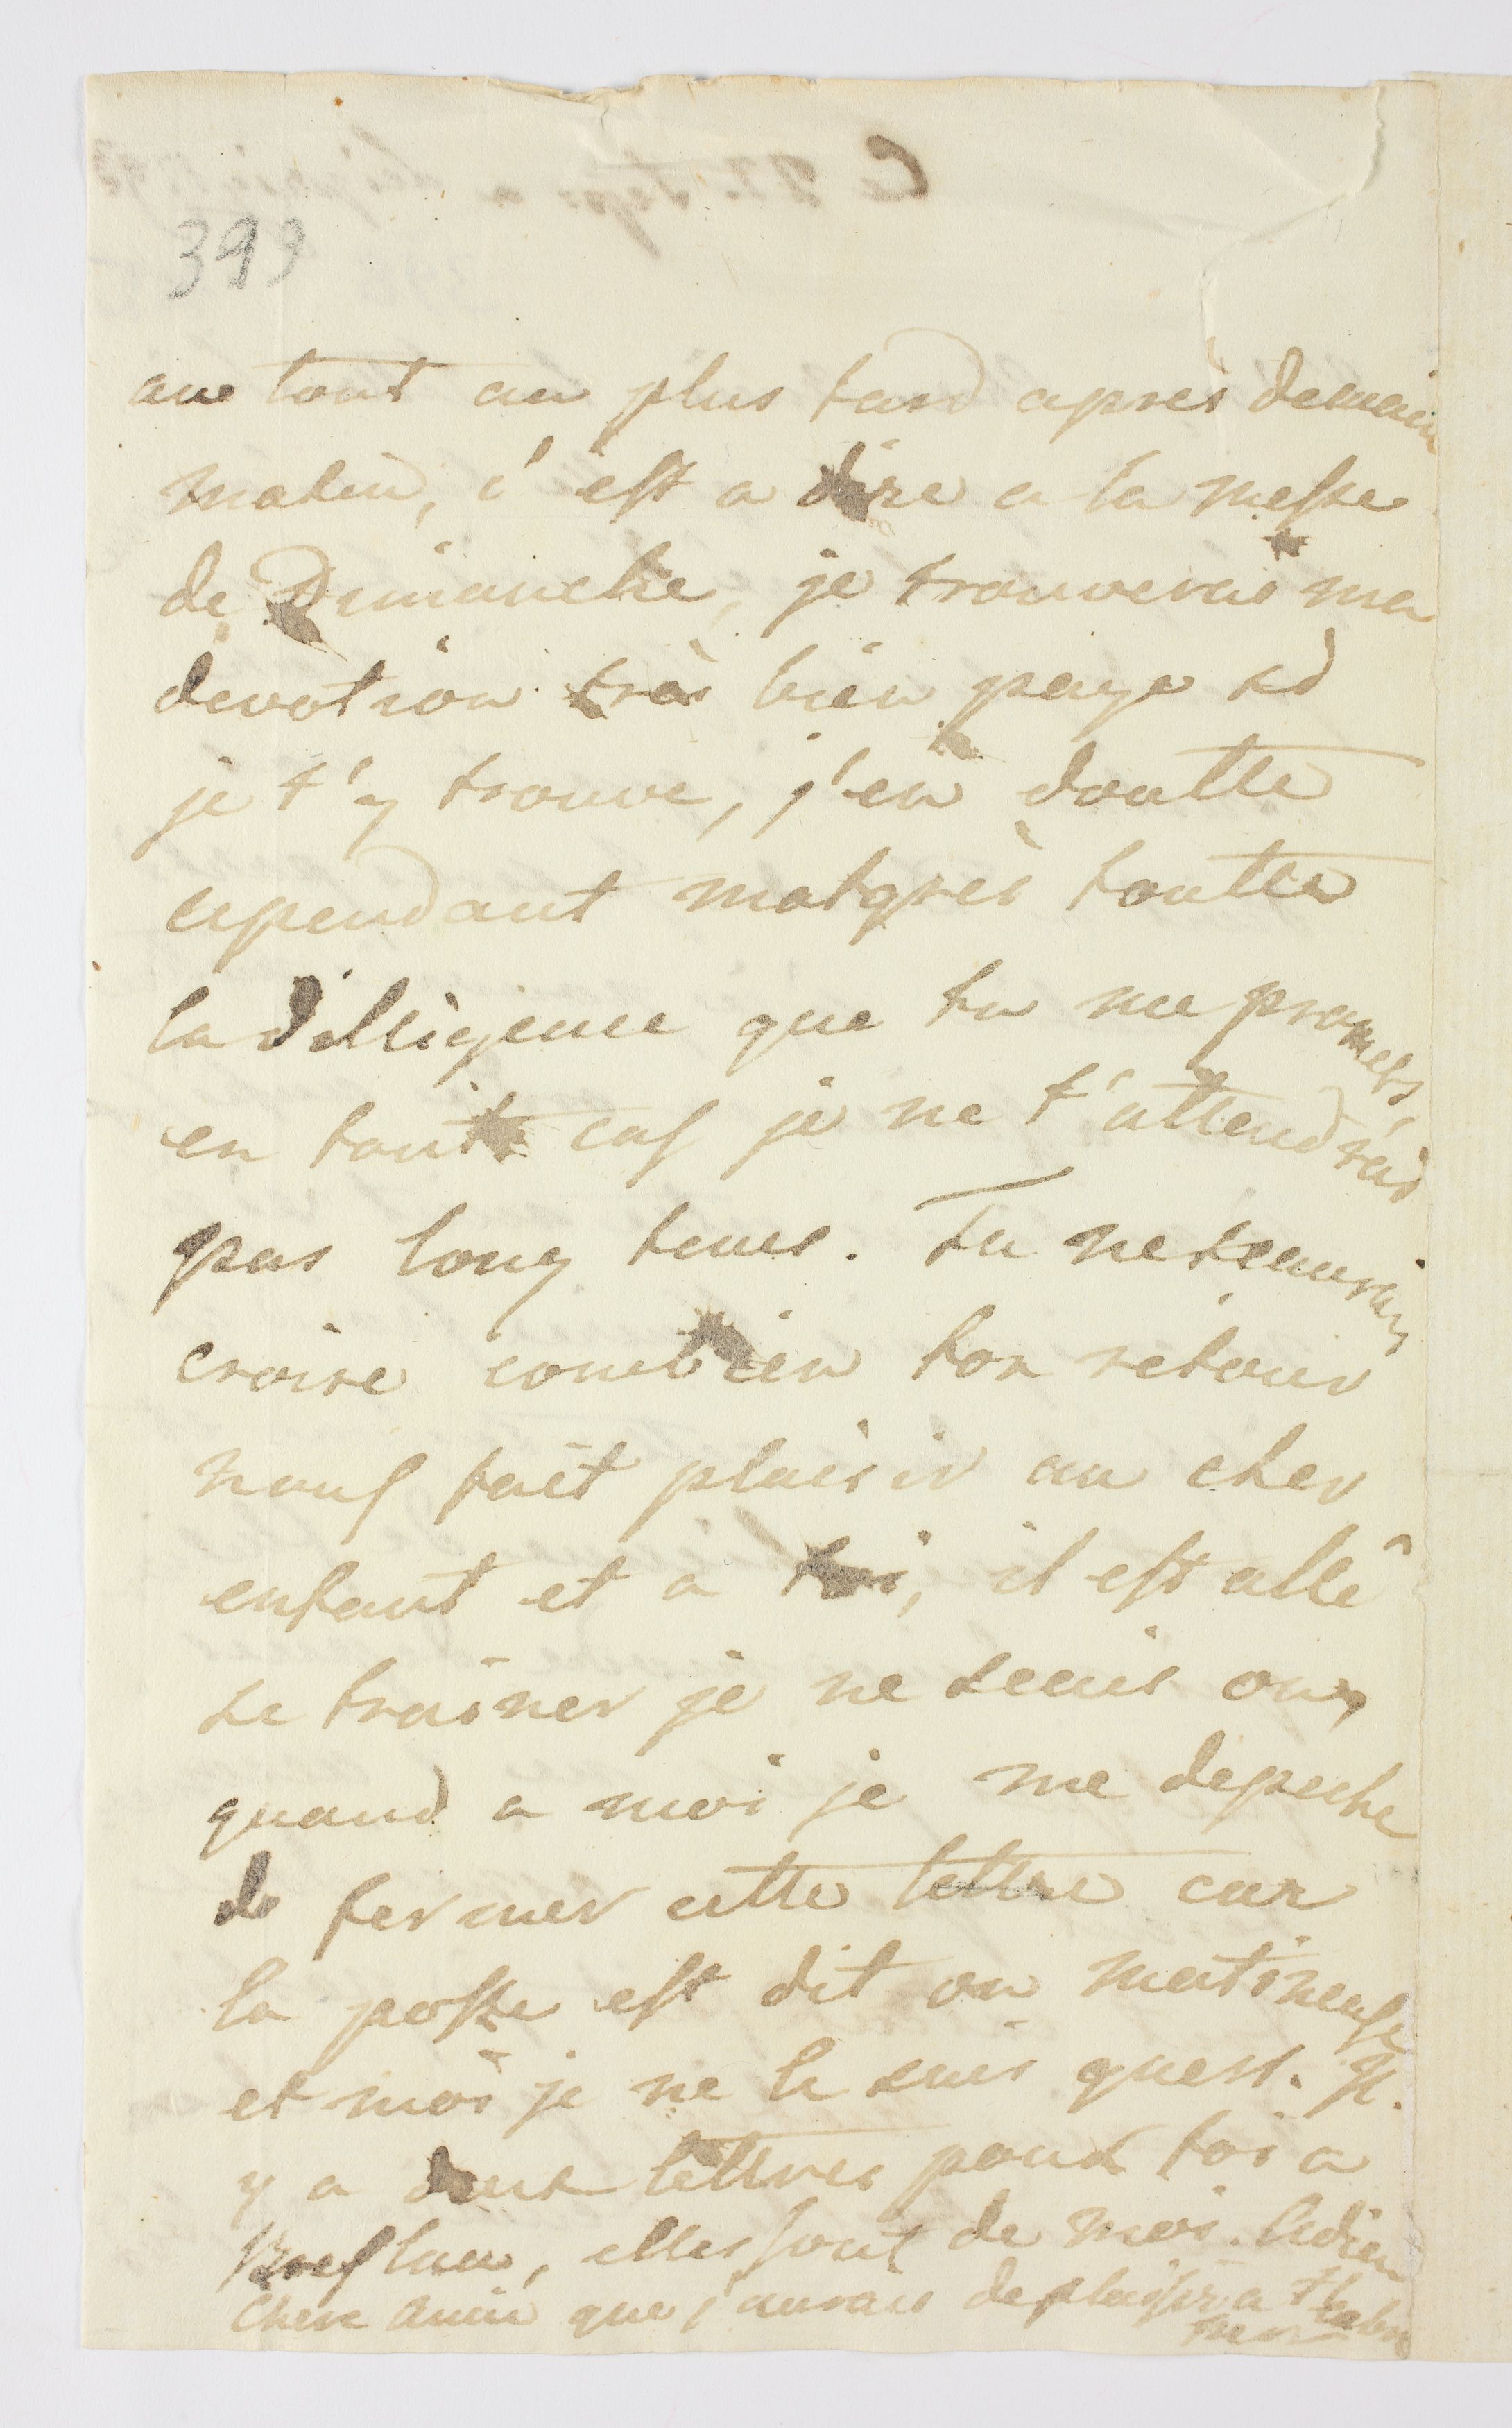 399
au tout au plus tard aprés demain
matin, c'est a dire a la messe
de Dimanche, je trouverais ma
devotion très bien paye si
je t'y trouve, j'en doutte
cependant malgrès toutte
la dilligence que tu me promets,
en tout cas je ne t'attendrais
pas long tems. Tu ne scaurais
croire combien ton retour
nous fait plaisir au cher
enfant et a toi, il est allé
se trainer je ne scais ou,
quand a moi je me depeche
de fermer cette lettre car
la poste est dit on matineuse
et moi je ne le suis guess. Il
y a deux lettres pour toi a
Breslau, elles sont de moi. Adieu
chere amie que j'aurais de plaisir a